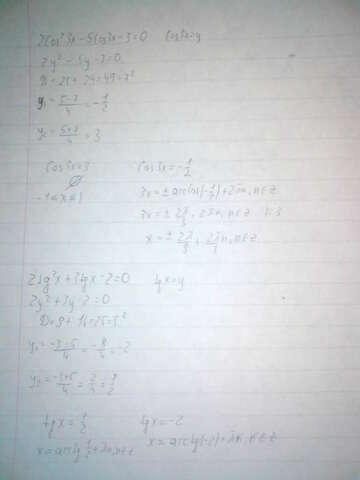 2cos²3x - 5cos3x - 3 = 0    cos3x = y
2y² - 5y - 3 = 0
D = 25 + 24 = 49 = 7²
y₁ = (5-7)/4 = -1/2
y₂ = (5+7)/4 = 3
cos3x = 3    cos3x = -1/2
∅
-1 ≤ x ≤ 1
3x = ± arccos(-1/2) + 2πn, n∈Z
3x = ± 2π/3 + 2πn, n∈Z  |:3
x = ± 2π/9 + 2πn/3, n∈Z
2tg²x + 3tgx - 2 = 0    tgx = y
2y² + 3y - 2 = 0
D = 9 + 16 = 25 = 5²
y₁ = (-3-5)/4 = -8/4 = -2
y₂ = (-3+5)/4 = 2/4 = 1/2
tgx = 1/2    tgx = -2
x = arctg 1/2 + πn, n∈Z    x = arctg(-2) + πn, n∈Z